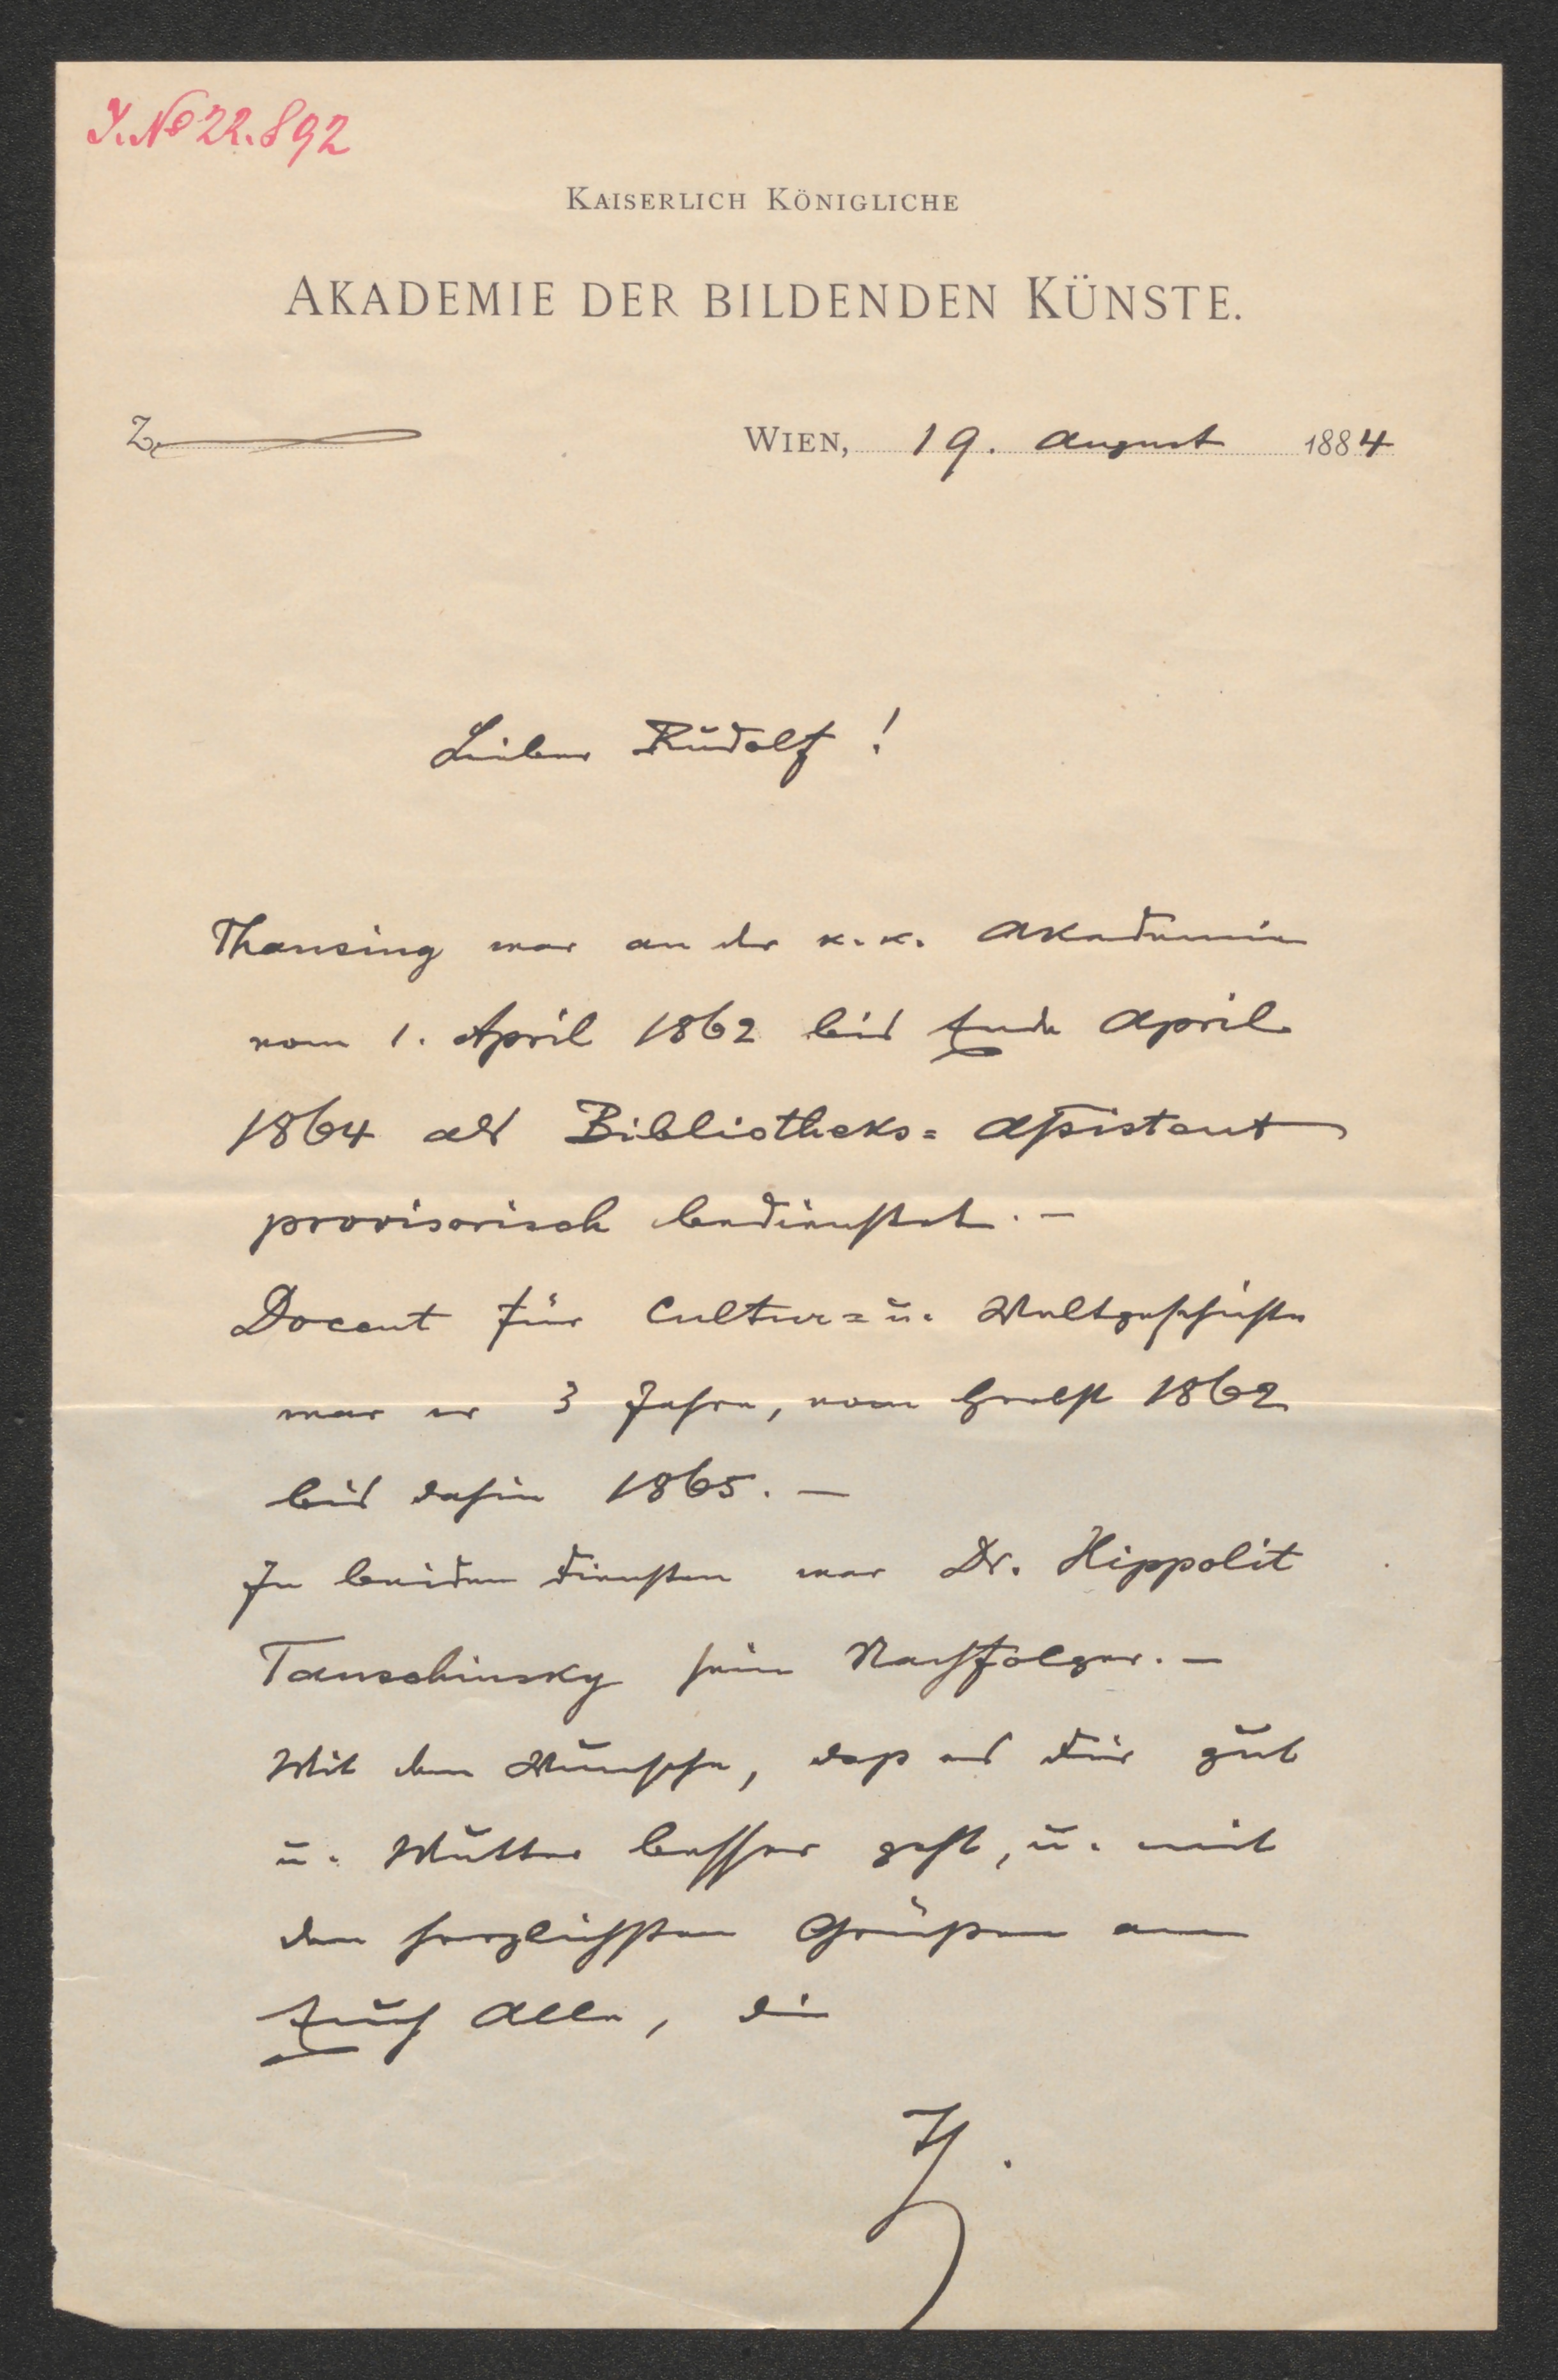 J. No 22.892
KAISERLICH KÖNIGLICHE
AKADEMIE DER BILDENDEN KÜNSTE.
Z.
WIEN, 19. August 1884
Lieber Rudolf!
Thausing war an der k. k. Akademie
vom 1. April 1862 bis Ende April
1864 als Bibliotheks= Assistent
provisorisch bedienstet. —
Docent für Cultur= u. Weltgeschichte
war er 3 Jahre, vom Herbst 1862
bis dahin 1865. —
In beiden Diensten war Dr. Hippolit
Tauschinsky sein Nachfolger. —
Mit dem Wunsche, daß es Dir gut
u. Mutter besser geht, u. mit
den herzlichsten Grüßen an
Euch Alle, Dein